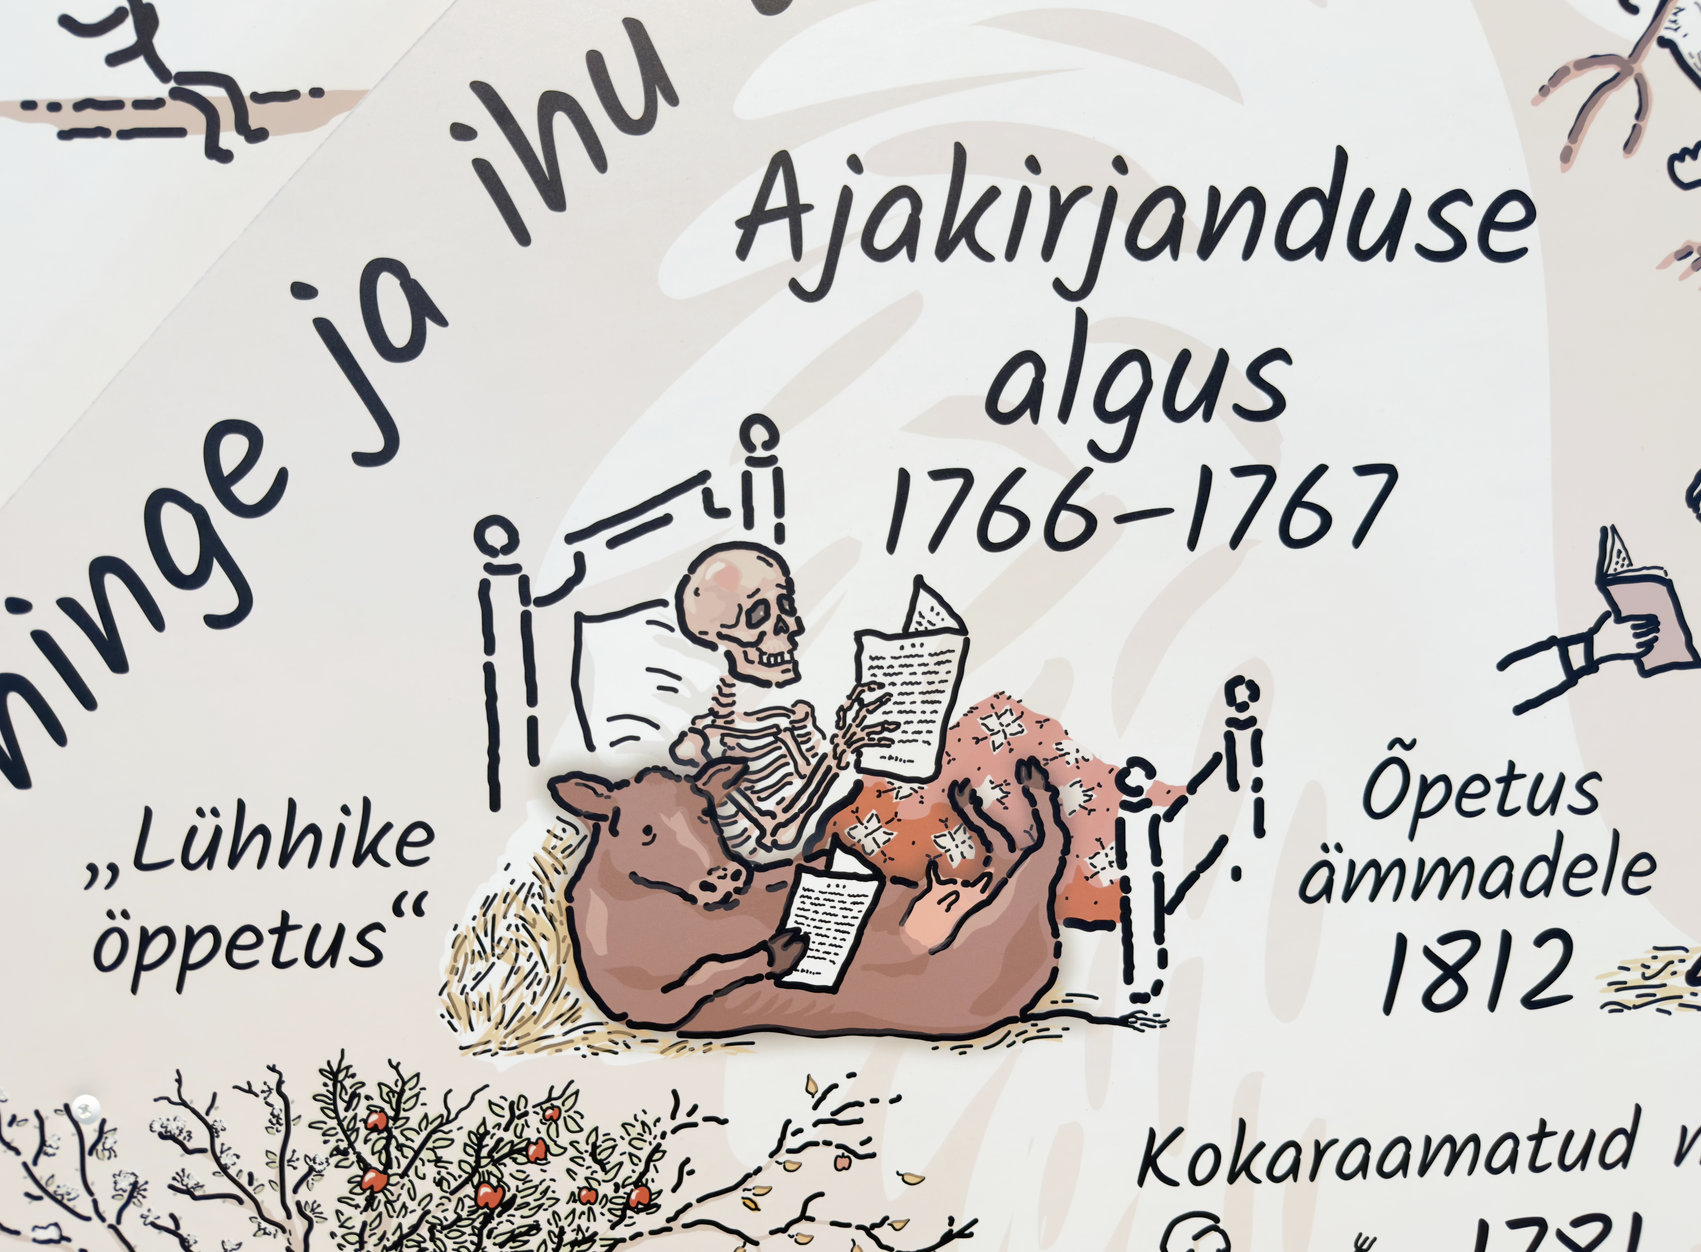 hinge ja ihu
Ajakirjanduse
algus
1766–1767
„Lühhike
öppetus“
Õpetus
ämmadele
1812
Kokaraamatud
1781